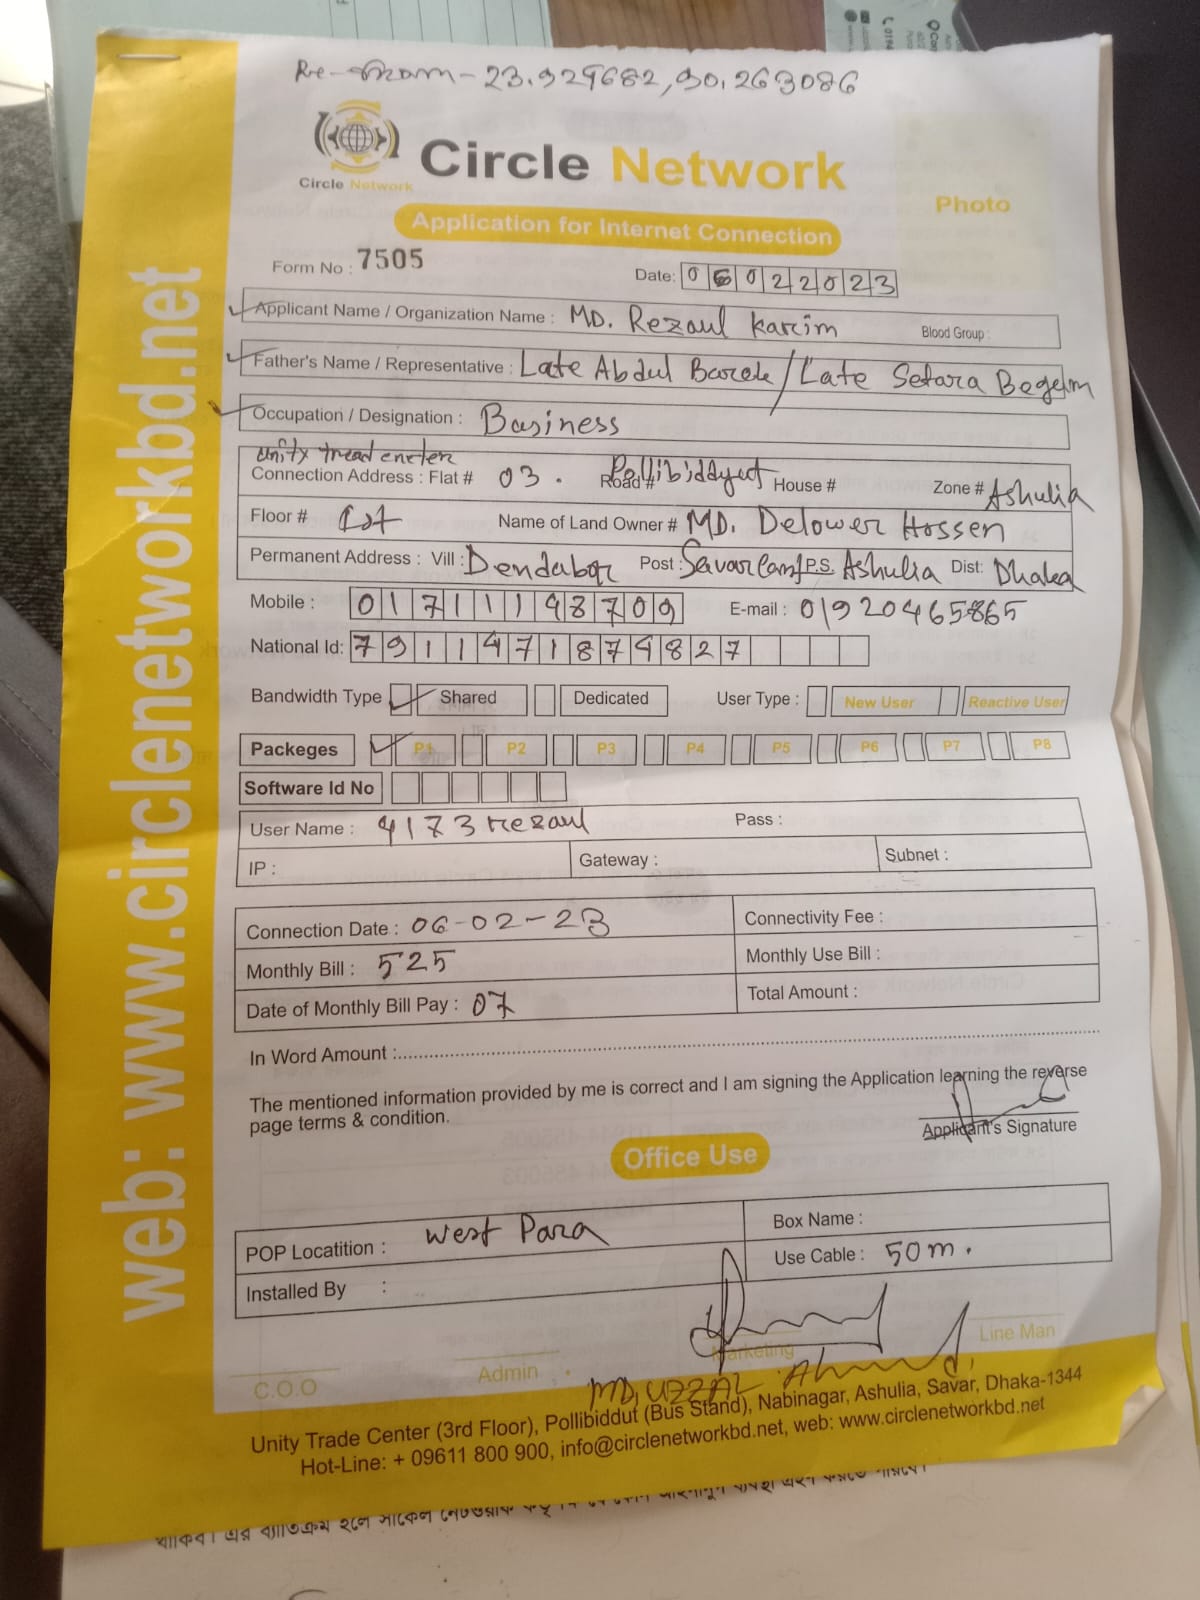 23.929682,90.263086
Circle Network
Circle Network
Photo
Application for Internet Connection
Form No : 7505
Date: 06022023
Applicant Name / Organization Name : MD. Rezaul Karim Blood Group :
Father's Name / Representative : Late Abdul Barek / Late Setara Begum
Occupation / Designation : Business
Connection Address : Flat # 03. Road # Pollibiddyut House # Zone # Ashulia
Floor # 1st Name of Land Owner # MD. Delower Hossen
Permanent Address : Vill : Dendabor Post : Savar P.S. Ashulia Dist: Dhaka
Mobile : 01711198709 E-mail : 01920465865
National Id: 7911471874827
Bandwidth Type Shared Dedicated User Type : New User Reactive User
Packeges P1 P2 P3 P4 P5 P6 P7 P8
Software Id No
User Name : 4173rezaul Pass :
IP : Gateway : Subnet :
Connection Date : 06-02-23 Connectivity Fee :
Monthly Bill : 525 Monthly Use Bill :
Date of Monthly Bill Pay : 07 Total Amount :
In Word Amount :
The mentioned information provided by me is correct and I am signing the Application learning the reverse
page terms & condition.
Applicant's Signature
Office Use
POP Locatition : West Para Box Name :
Installed By : Use Cable : 50m.
C.O.O Admin Marketing Line Man
MD. UZZAL Ahmed
Unity Trade Center (3rd Floor), Pollibiddut (Bus Stand), Nabinagar, Ashulia, Savar, Dhaka-1344
Hot-Line: + 09611 800 900, info@circlenetworkbd.net, web: www.circlenetworkbd.net
web: www.circlenetworkbd.net